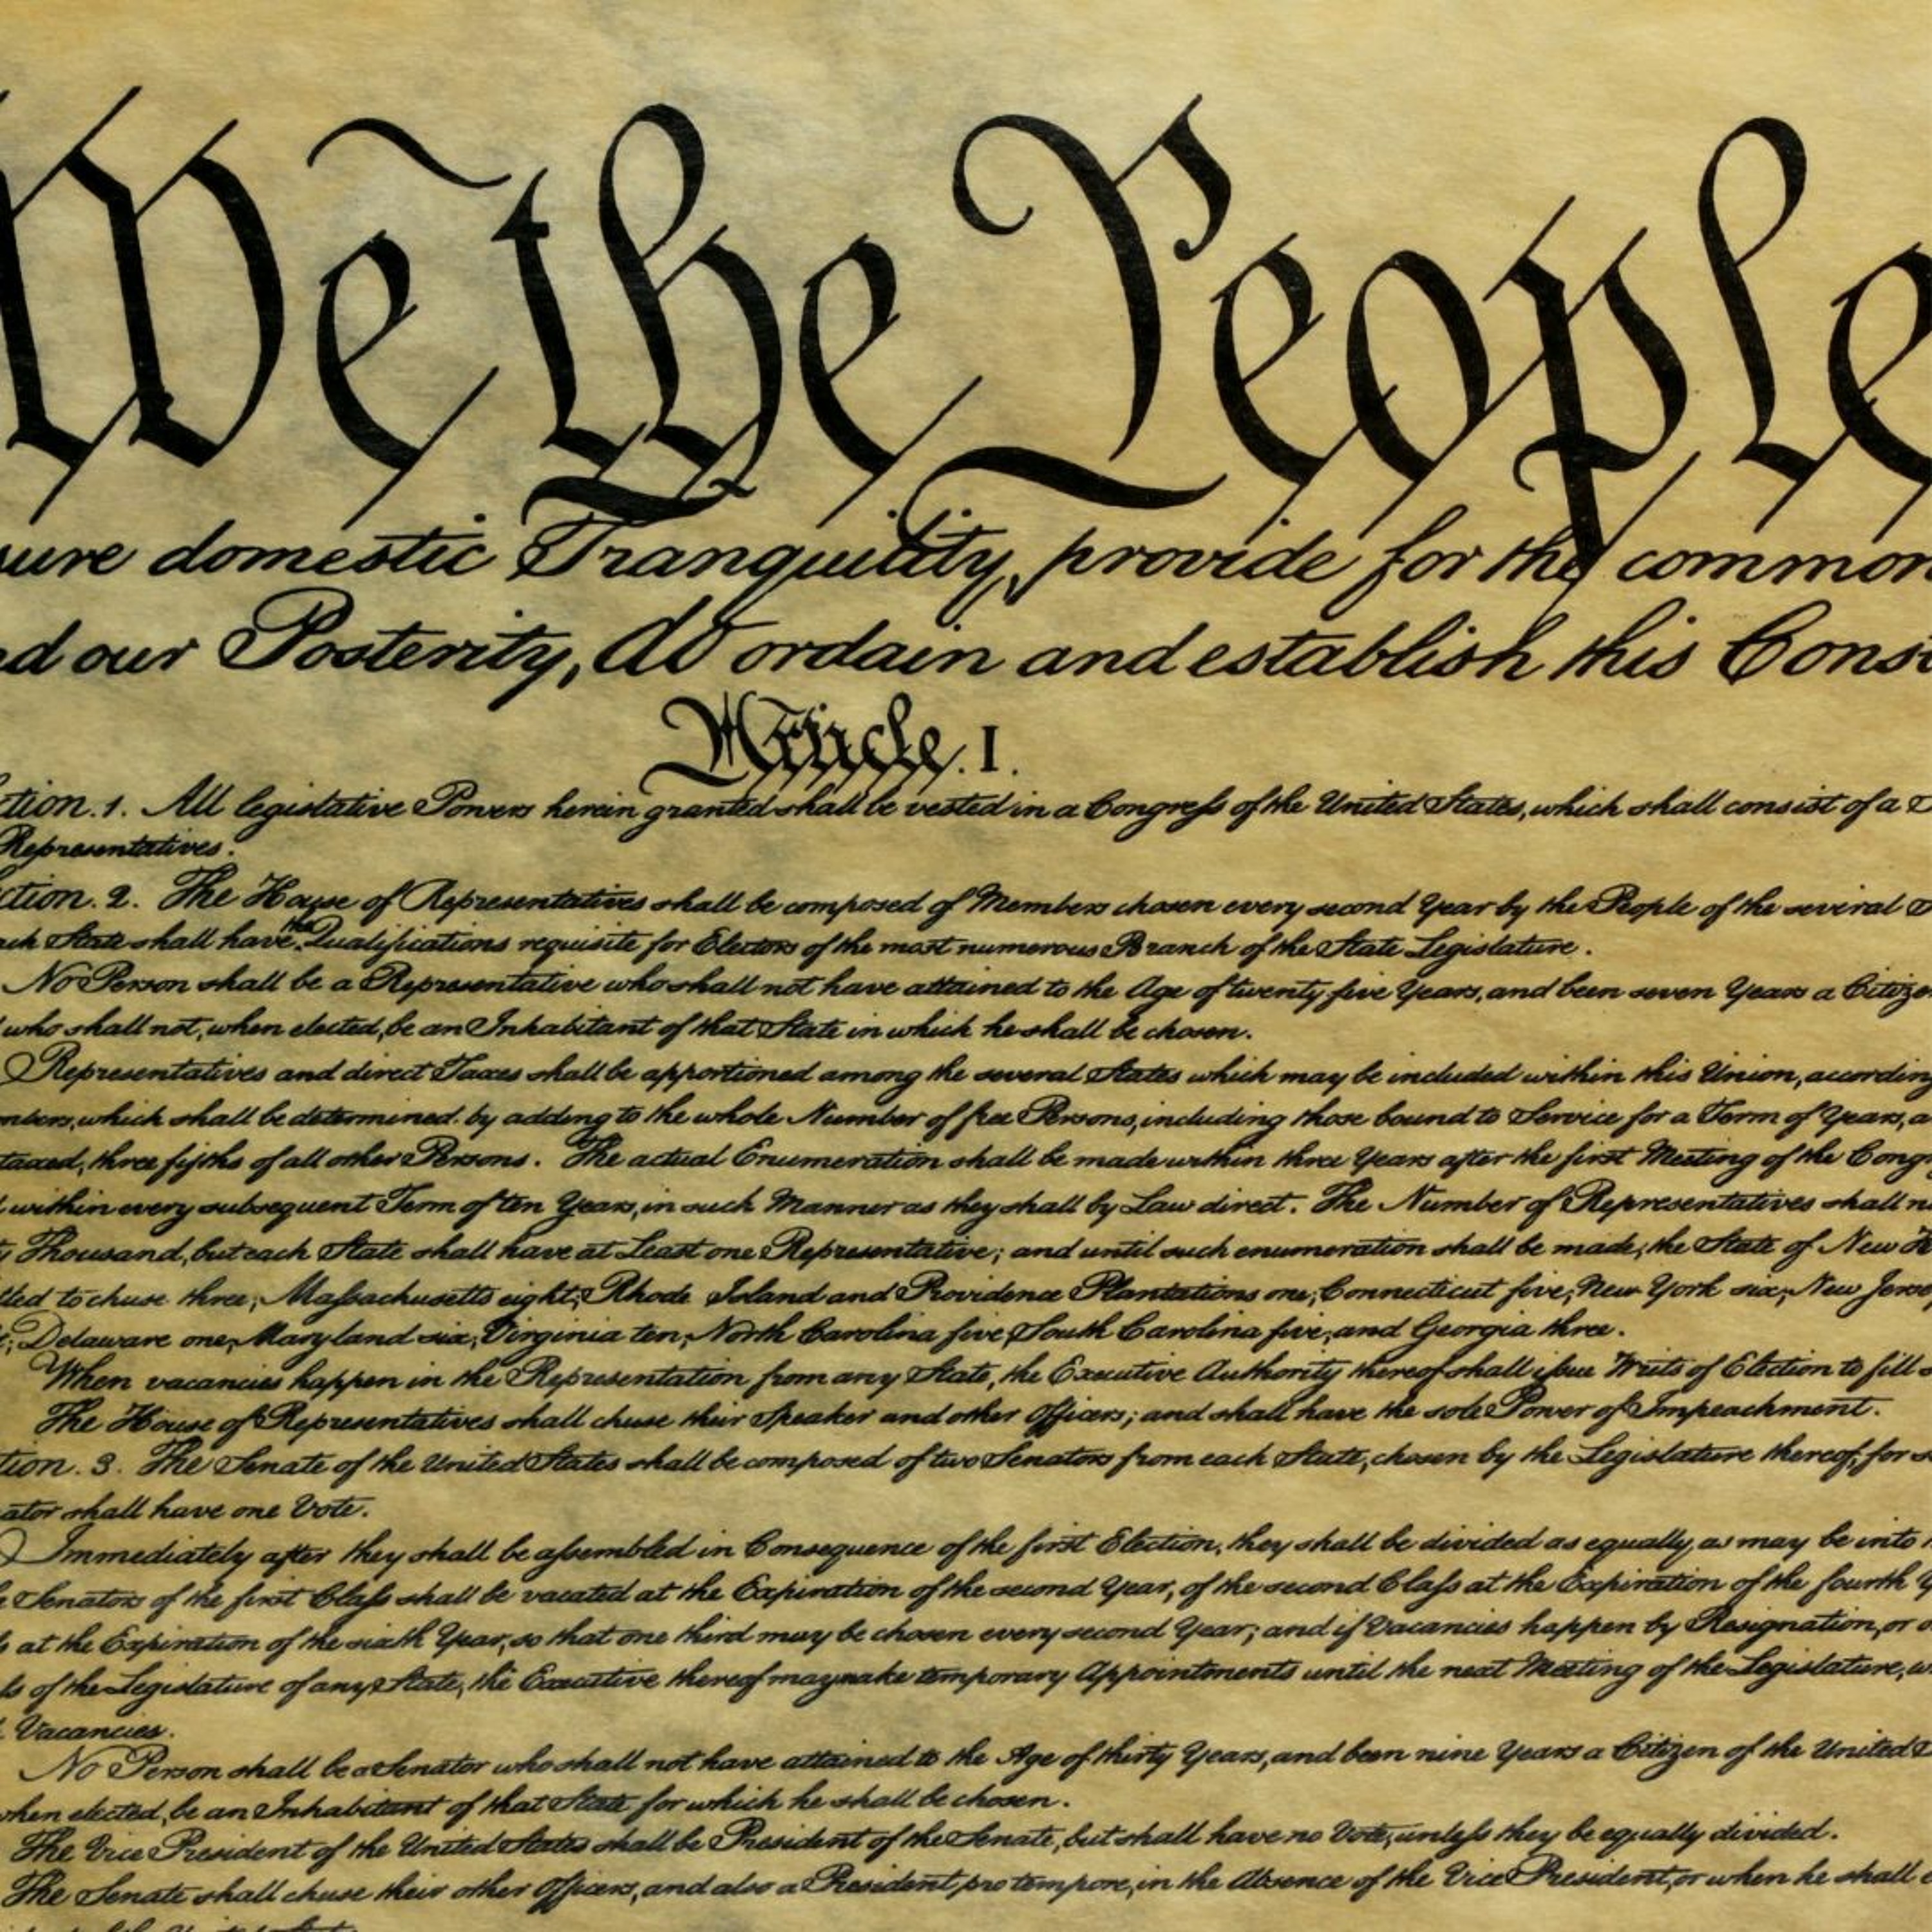 We the People
sure domestic Tranquility, provide for the common
d our Posterity, do ordain and establish this Cons
Article. I.
ction. 1. All legislative Powers herein granted shall be vested in a Congress of the United States, which shall consist of a
Representatives.
ction. 2. The House of Representatives shall be composed of Members chosen every second Year by the People of the several
ach State shall have the Qualifications requisite for Electors of the most numerous Branch of the State Legislature.
No Person shall be a Representative who shall not have attained to the Age of twenty five Years, and been seven Years a Citizen
who shall not, when elected, be an Inhabitant of that State in which he shall be chosen.
Representatives and direct Taxes shall be apportioned among the several States which may be included within this Union, according
mbers, which shall be determined by adding to the whole Number of free Persons, including those bound to Service for a Term of Years, a
taxed, three fifths of all other Persons. The actual Enumeration shall be made within three Years after the first Meeting of the Congr
within every subsequent Term of ten Years, in such Manner as they shall by Law direct. The Number of Representatives shall n
y Thousand, but each State shall have at Least one Representative; and until such enumeration shall be made, the State of New H
tled to chuse three, Massachusetts eight, Rhode Island and Providence Plantations one, Connecticut five, New York six, New Jerse
Delaware one, Maryland six, Virginia ten, North Carolina five, South Carolina five, and Georgia three.
When vacancies happen in the Representation from any State, the Executive Authority thereof shall issue Writs of Election to fill
The House of Representatives shall chuse their Speaker and other Officers; and shall have the sole Power of Impeachment.
tion. 3. The Senate of the United States shall be composed of two Senators from each State, chosen by the Legislature thereof, for s
ator shall have one Vote.
Immediately after they shall be assembled in Consequence of the first Election, they shall be divided as equally as may be into
e Senators of the first Class shall be vacated at the Expiration of the second Year, of the second Class at the Expiration of the fourth Y
s at the Expiration of the sixth Year, so that one third may be chosen every second Year; and if Vacancies happen by Resignation, or o
ss of the Legislature of any State, the Executive thereof may make temporary Appointments until the next Meeting of the Legislature, w
Vacancies.
No Person shall be a Senator who shall not have attained to the Age of thirty Years, and been nine Years a Citizen of the United
when elected, be an Inhabitant of that State for which he shall be chosen.
The Vice President of the United States shall be President of the Senate, but shall have no Vote, unless they be equally divided.
The Senate shall chuse their other Officers, and also a President pro tempore, in the Absence of the Vice President, or when he shall